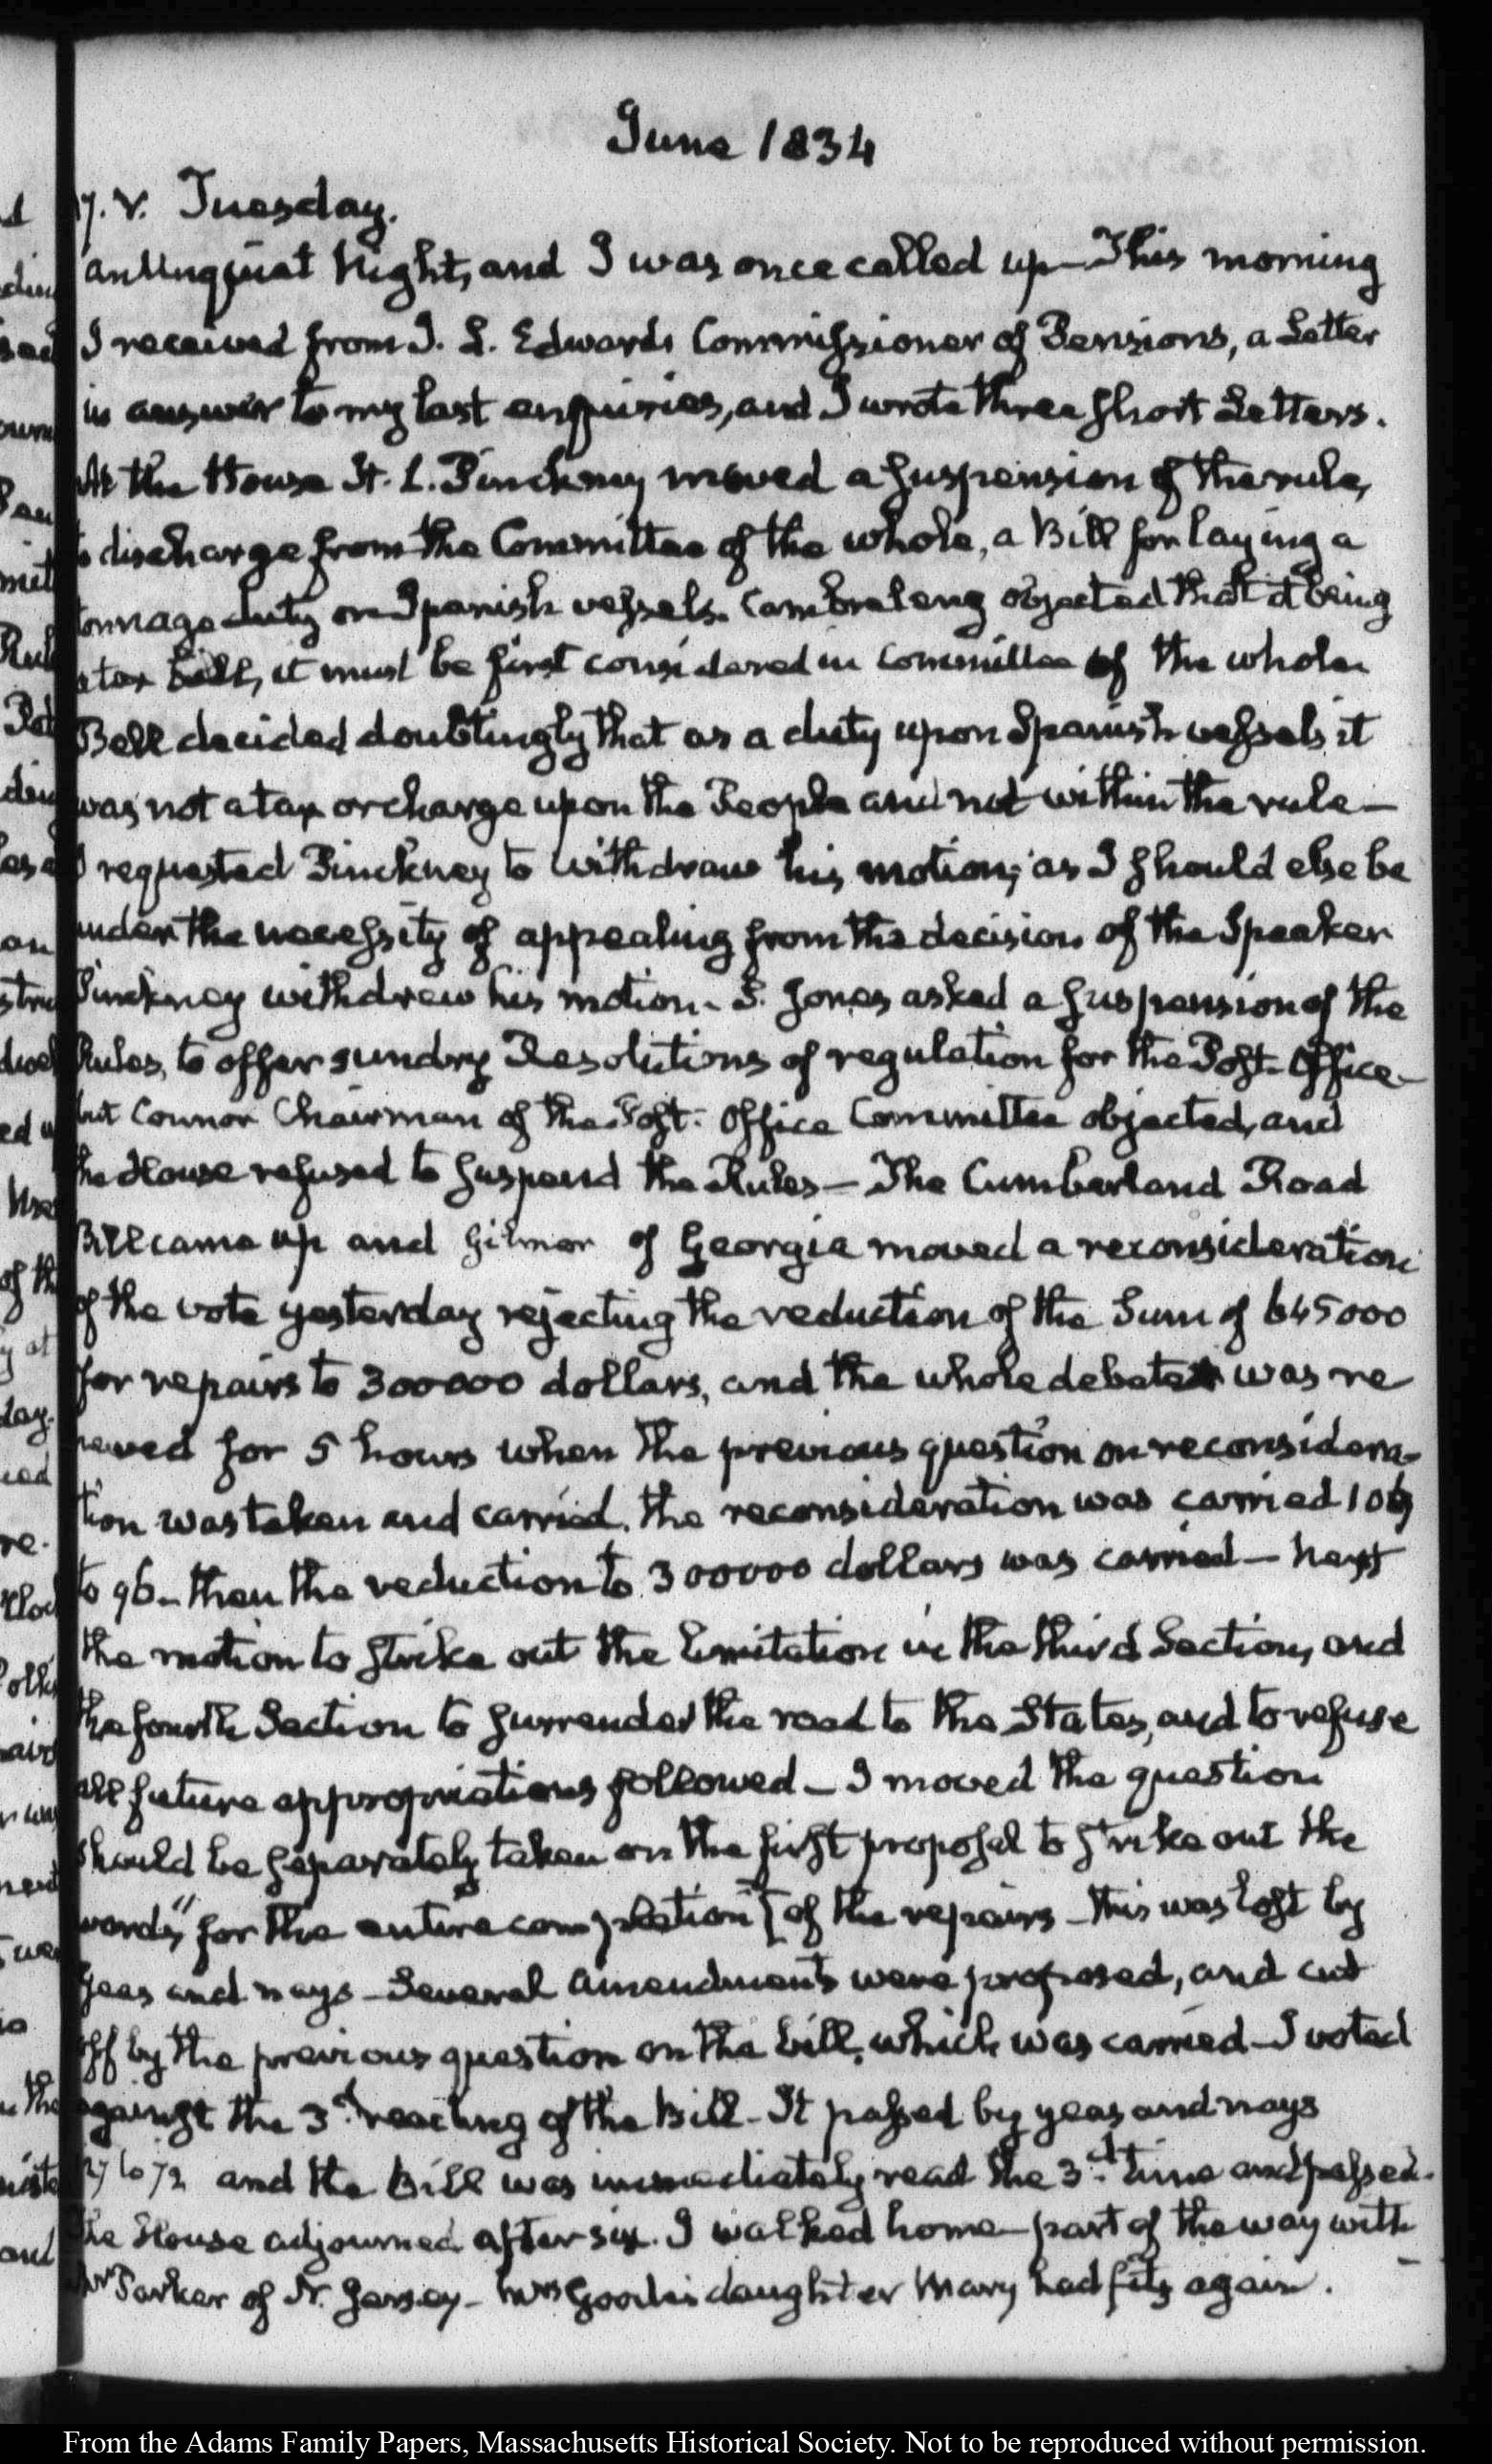 June 1834
17. V. Tuesday.
an unquiat Night, and I was once called up— This morning
I received from J. L. Edwards Commissioner of Pensions, a Letter
in answer to my last enquiries, and I wrote three short Letters.
At the House H. L. Pinckney moved a suspension of the rule,
to discharge from the Committee of the whole, a Bill for laying a
tonnage duty on Spanish vessels. Cambreleng objected that it being
a tax bill, it must be first considered in Committee of the whole.
Bell decided doubtingly that as a duty upon Spanish vessels it
was not a tax or charge upon the People and not within the rule—
I requested Pinckney to withdraw his motion; as I should else be
under the necessity of appealing from the decision of the Speaker
Pinckney withdrew his motion— S. Jones asked a suspension of the
Rules, to offer sundry Resolutions of regulation for the Post-Office—
but Connor Chairman of the Post-Office Committee objected, and
the House refused to suspend the Rules— The Cumberland Road
Bill came up and Gilmer of Georgia moved a reconsideration
of the vote yesterday rejecting the reduction of the Sum of 645000
for repairs to 300000 dollars, and the whole debate was re
newed for 5 hours when the previous question on reconsidera-
tion was taken and carried. the reconsideration was carried 109
to 96— then the reduction to 300000 dollars was carried— Next
the motion to strike out the limitation in the third Section, and
the fourth Section to surrender the road to the States, and to refuse
all future appropriations followed— I moved the question
should be separately taken on the first proposal to strike out the
words "for the entire completion" of the repairs— this was lost by
yeas and nays— Several amendments were proposed, and cut
off by the previous question on the bill, which was carried— I voted
against the 3d. reading of the Bill— It passed by yeas and nays
to 72 and the Bill was immediately read the 3d. time and passed.
The House adjourned after six. I walked home— part of the way with
Mr Parker of N. Jersey— Mrs daughter Mary had fits again.